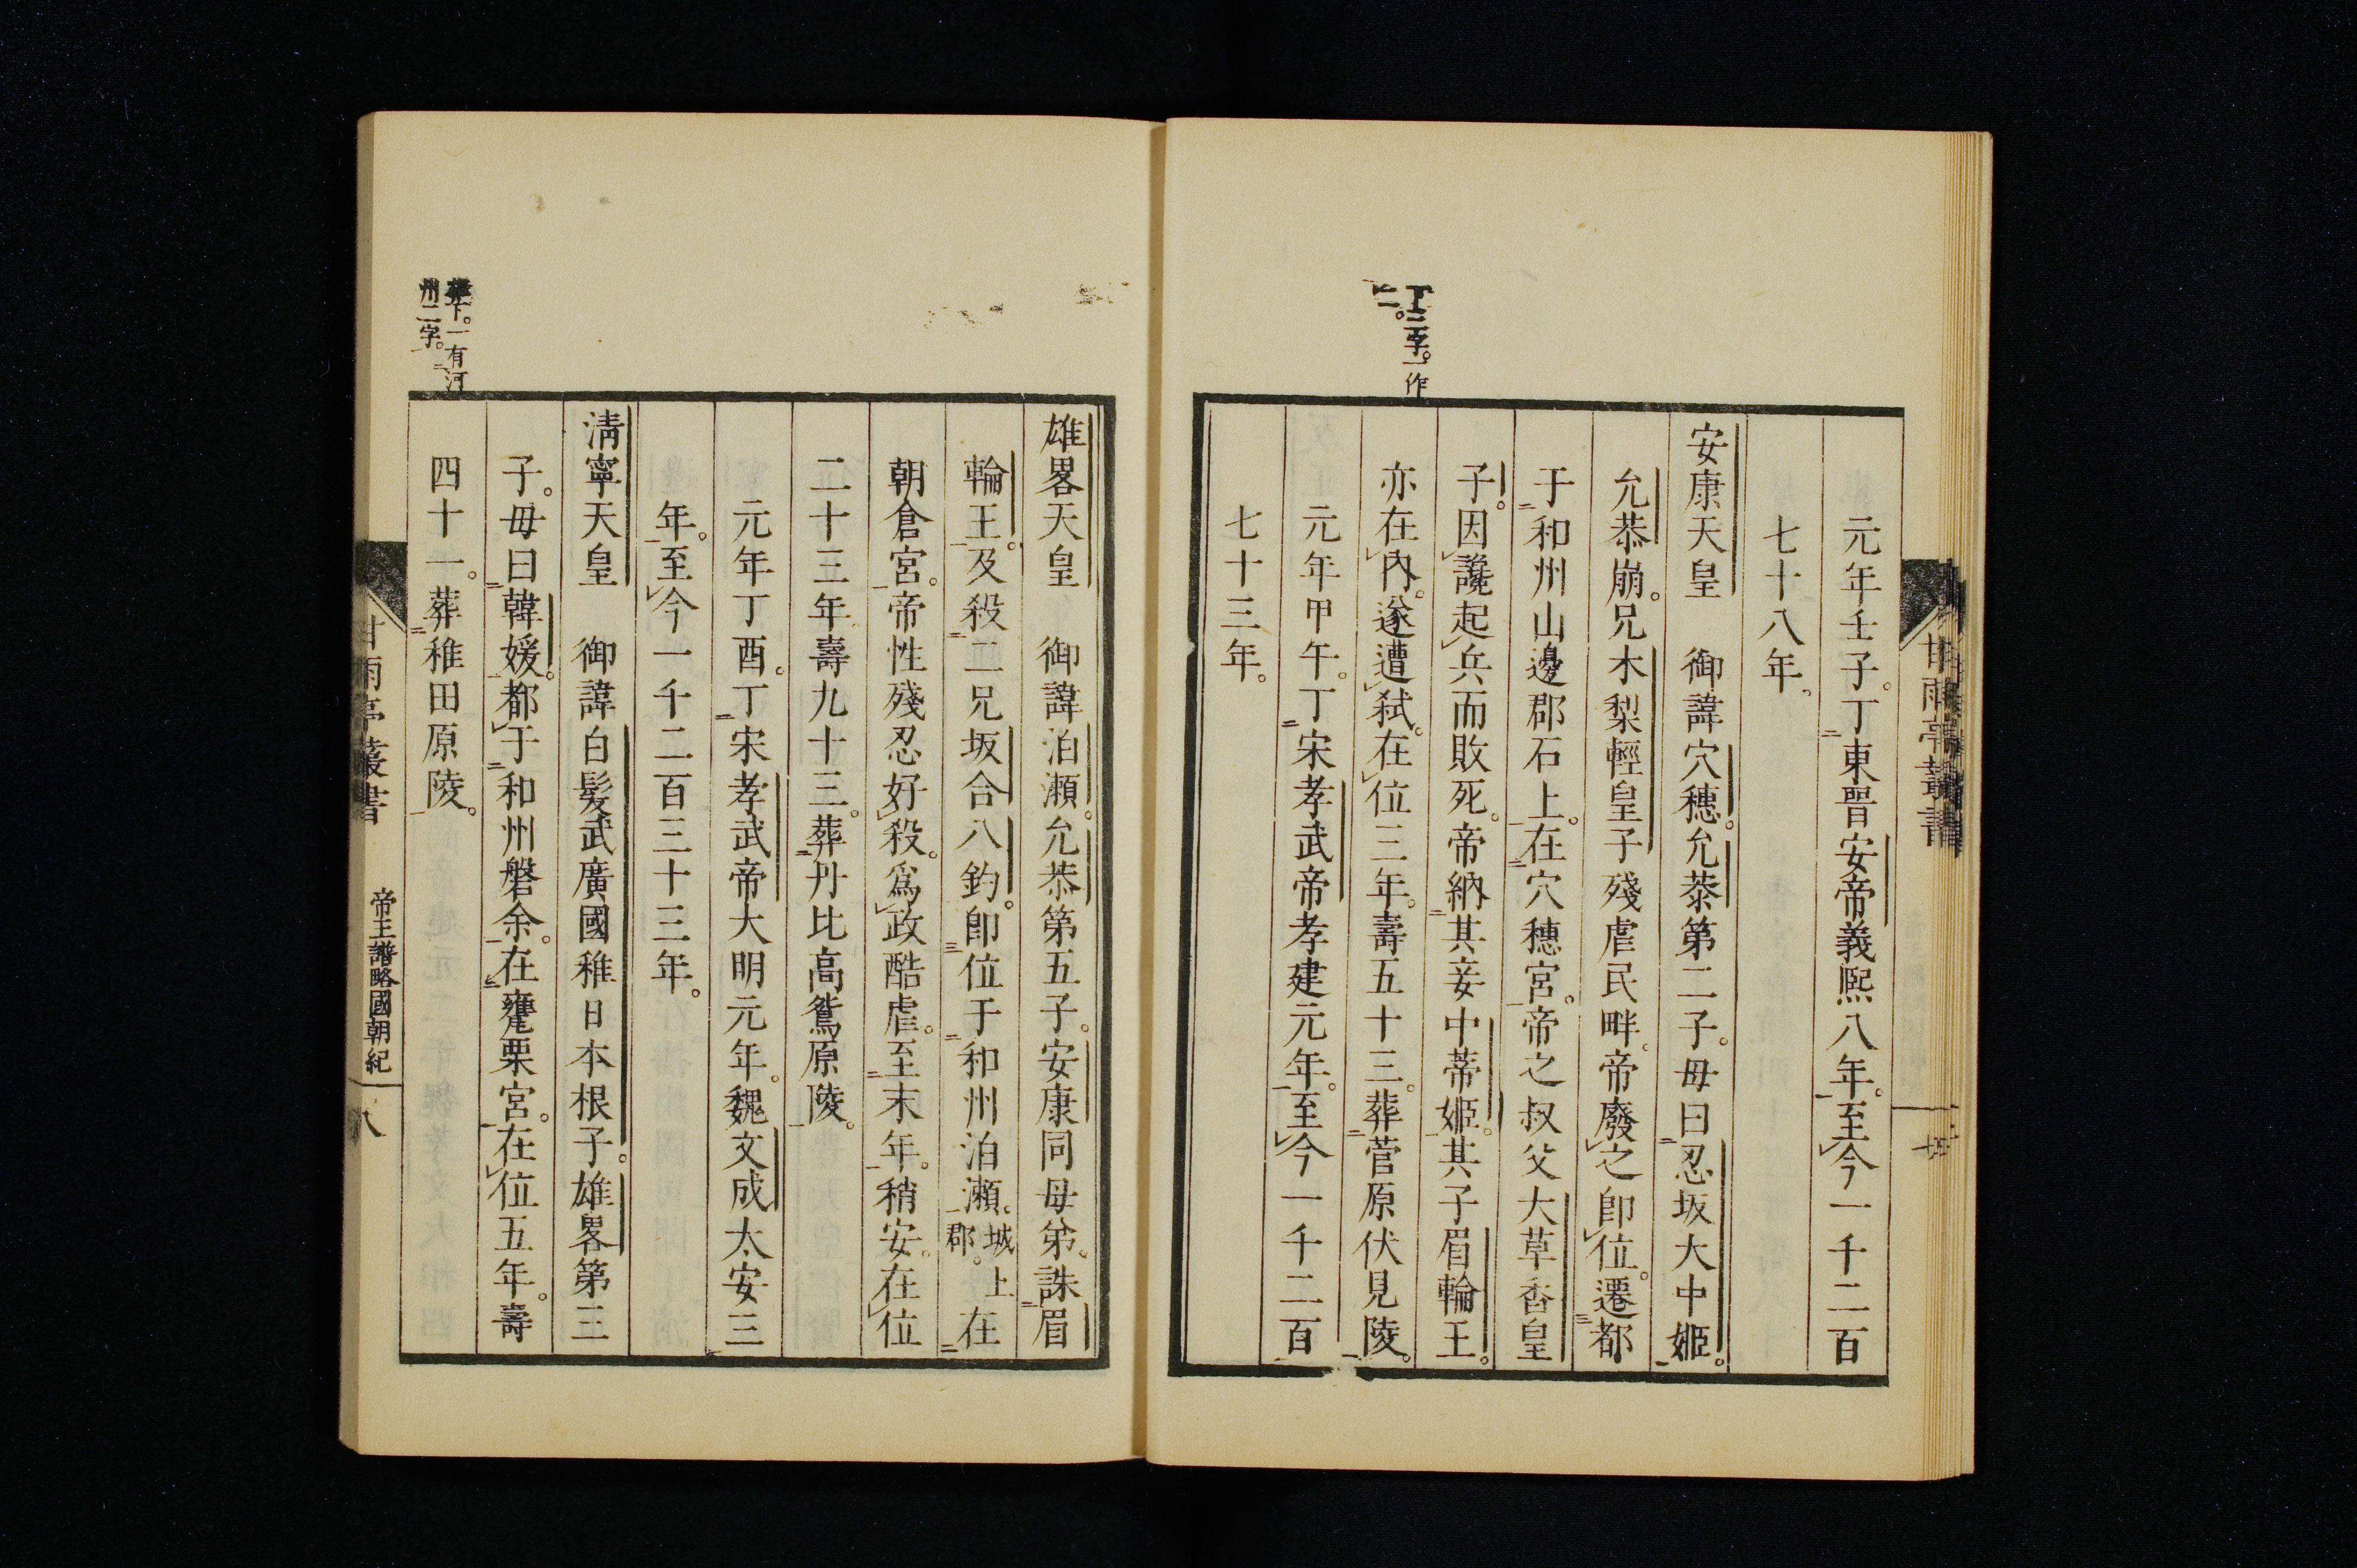 元年壬子。丁東晉安帝義熙八年。至今一千二百
七十八年。
安康天皇　御諱穴穗。允恭第二子。母曰忍坂大中姬。
允恭崩。兄木梨輕皇子殘虐民畔。帝廢之卽位。遷都
于和州山邊郡石上。在穴穗宮。帝之叔父大草香皇
子。因讒起兵而敗死。帝納其妾中蒂姬。其子眉輪王。
亦在內。遂遭弑。在位三年。壽五十三。葬菅原伏見陵。
元年甲午。丁宋孝武帝孝建元年。至今一千二百
七十三年。
三字。一作
二。
甘雨亭叢書
雄畧天皇　御諱泊瀬。允恭第五子。安康同母弟。誅眉
輪王。及殺二兄坂合八釣。卽位于和州泊瀬。城上郡。在
朝倉宮。帝性殘忍好殺。爲政酷虐。至末年。稍安。在位
二十三年壽九十三。葬丹比高鷲原陵。
元年丁酉。丁宋孝武帝大明元年。魏文成太安三
年。至今一千二百三十三年。
淸寧天皇　御諱白髮武廣國稚日本根子。雄畧第三
子。母曰韓媛。都于和州磐余。在甕栗宮。在位五年。壽
四十一。葬稚田原陵。
下。一有河
州二字。
甘雨亭叢書
帝王譜略國朝紀
八